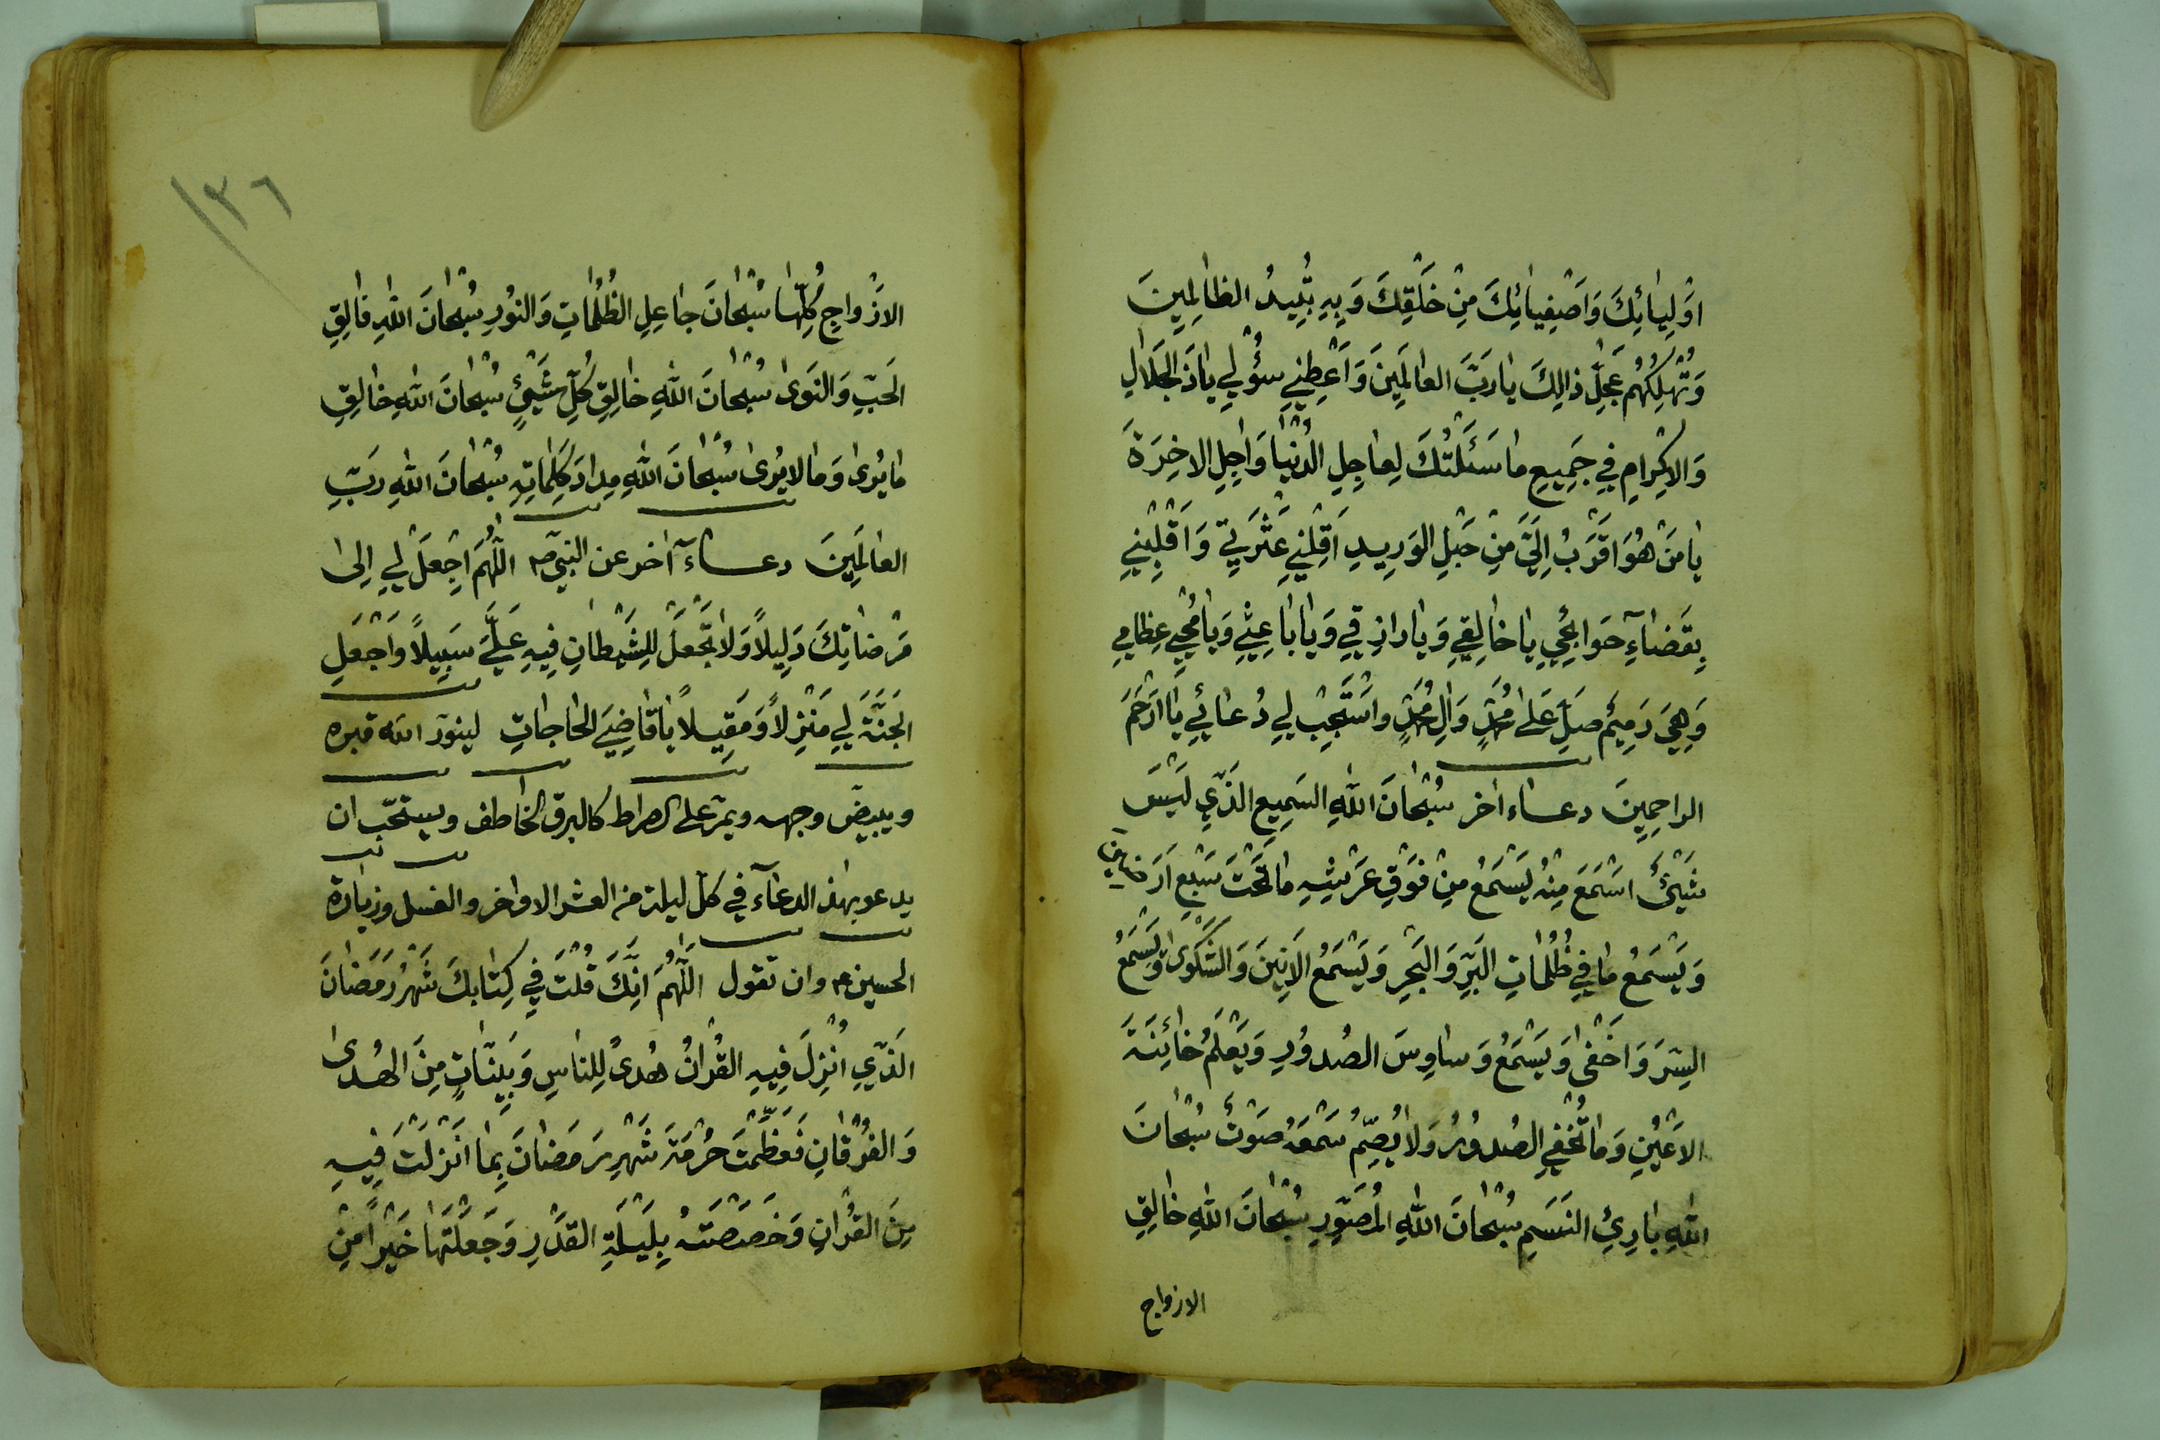 اَوْلِيٰائِكَ وَاَصْفِيٰائِكَ مِنْ خَلْقِكَ وَبِهِ تُبِيدُ الظٰالِمِينَ
وَتُهْلِكُهُم عَجِّلْ ذٰلِكَ يٰارَبَّ العٰالَمِينَ وَاَعْطِنِي سُؤْلِي يٰاذَالجَلٰالِ
وَالاِكْرٰامِ فِي جَمِيعِ مٰا سَئَلْتُكَ لِعٰاجِلِ الدُنْيٰا وَاٰجِلِ الاخِرَةَ
يٰامَنْ هُوَ اَقْرَبُ اِلَيَّ مِنْ حَبْلِ الوَرِيدِ اَقِلْنِي عَثْرَتِي وَاَقْلِبْنِي
بِقَضٰاءِ حَوٰائِجِي يٰاخٰالِقِي وَيٰارٰازِقِي وَيٰابٰاعِثِي وَيٰامُحْيِي عِظٰامِي
وَهِيَ رَمِيمٌ صَلِّ عَلىٰ مُحَمَّدٍ وَاٰلِ مُحَمَّدٍ وَاسْتَجِبْ لِي دُعٰائِي يٰااَرْحَمَ
الراحِمِينَ دعـاء اخر سُبْحٰانَ اللّٰهِ السَمِيعِ الَّذِي لَيْسَ
شَيْئٌ اَسْمَعَ مِنْهُ يَسْمَعُ مِنْ فَوْقِ عَرْشِهِ مٰا تَحْتَ سَبْعِ اَرَضِينَ
وَيَسْمَعُ مٰا فِي ظُلُمٰاتِ البَرِّ وَالبَحْرِ وَيَسْمَعُ الاَنِينَ وَالشَكْوىٰ وَيَسْمَعُ
السِرَّ وَاَخْفىٰ وَيَسْمَعُ وَسٰاوِسَ الصُدُورِ وَيَعْلَمُ خٰائِنَةَ
الاَعْيُنِ وَمٰا تُخْفِي الصُدُورُ وَلٰا يُصِمُّ سَمْعَهُ صَوْتٌ سُبْحٰانَ
اللّٰهِ بٰارِئِ النَسَمِ سُبْحٰانَ اللّٰهِ المُصَوِّرِ سُبْحٰانَ اللّٰهِ خٰالِقِ
الازواج
١٣٦
الاَزْوٰاجِ كُلِّهٰا سُبْحٰانَ جٰاعِلِ الظُلُمٰاتِ وَالنُورِ سُبْحٰانَ اللّٰهِ فٰالِقِ
الحَبِّ وَالنَوىٰ سُبْحٰانَ اللّٰهِ خٰالِقِ كُلِّ شَيْئٍ سُبْحٰانَ اللّٰهِ خٰالِقِ
مٰا يُرىٰ وَمٰا لا يُرىٰ سُبْحٰانَ اللّٰهِ مِدٰادَ كَلِمٰاتِهِ سُبْحٰانَ اللّٰهِ رَبِّ
العٰالَمِينَ دعـاءٓ اخر عن النبي ص اللّٰهُمَّ اجْعَلْ لِي اِلىٰ
مَرْضٰاتِكَ دَلِيلاً وَلٰا تَجْعَلْ لِلشَيْطٰانِ فِيهِ عَلَيَّ سَبِيلاً وَاجْعَلِ
الجَنَّةَ لِي مَنْزِلاً وَمَقِيلاً يٰاقٰاضِيَ الحٰاجٰاتِ لينوّر الله قبره
ويبيضّ وجهه ويمرّ على الصراط كالبرق الخاطف ويستحّب ان
يدعو بهذا الدعآء في كلّ ليلة من العشر الاواخر والغسل وزيارة
الحسين ع وان تقول اللّٰهُمَّ اِنَّكَ قُلْتَ فِي كِتٰابِكَ شَهْرُ رَمَضٰانَ
الَّذِي اُنْزِلَ فِيهِ القُرْاٰنُ هُدىً لِلنٰاسِ وَبَيِّنٰاتٍ مِنَ الهُدىٰ
وَالفُرْقٰانِ فَعَظَّمْتَ حُرْمَةَ شَهْرِ رَمَضٰانَ بِمٰا اَنْزَلْتَ فِيهِ
مِنَ القُرْاٰنِ وَخَصَصْتَهُ بِلَيْلَةِ القَدْرِ وَجَعَلْتَهٰا خَيْراً مِنْ